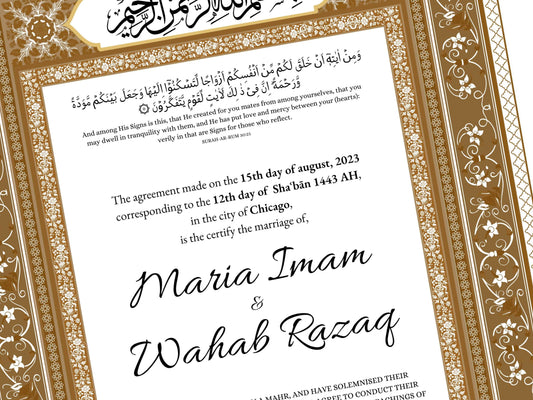 بسم الله الرحمن الرحيم
وَمِنْ اٰيٰتِهٖٓ اَنْ خَلَقَ لَكُمْ مِّنْ اَنْفُسِكُمْ اَزْوَاجًا لِّتَسْكُنُوْٓا اِلَيْهَا وَجَعَلَ بَيْنَكُمْ مَّوَدَّةً
وَّرَحْمَةً اِنَّ فِيْ ذٰلِكَ لَاٰيٰتٍ لِّقَوْمٍ يَّتَفَكَّرُوْنَ
And among His Signs is this, that He created for you mates from among yourselves, that you
may dwell in tranquility with them, and He has put love and mercy between your (hearts):
verily in that are Signs for those who reflect.
SURAH-AR-RUM 30:21
The agreement made on the 15th day of august, 2023
corresponding to the 12th day of Sha'bān 1443 AH,
in the city of Chicago,
is the certify the marriage of,
Maria Imam
&
Wahab Razaq
MAHR, AND HAVE SOLEMNISED THEIR
TO CONDUCT THEIR
OF